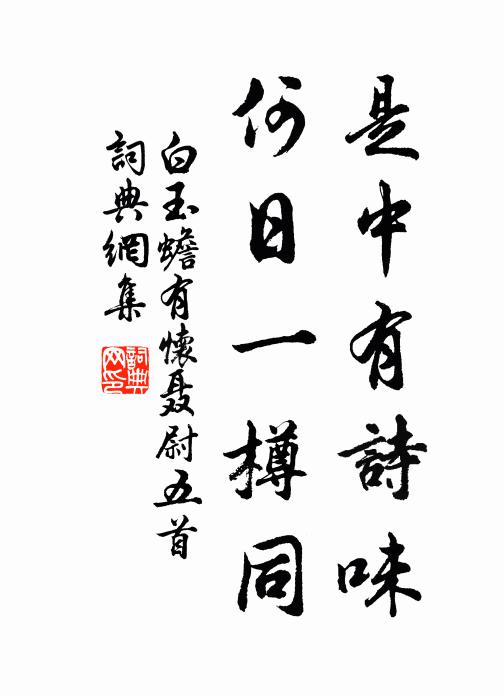 是中有詩味
何日一樽同
白玉蟾有懷聶尉五首
詞典網集
詞典网印